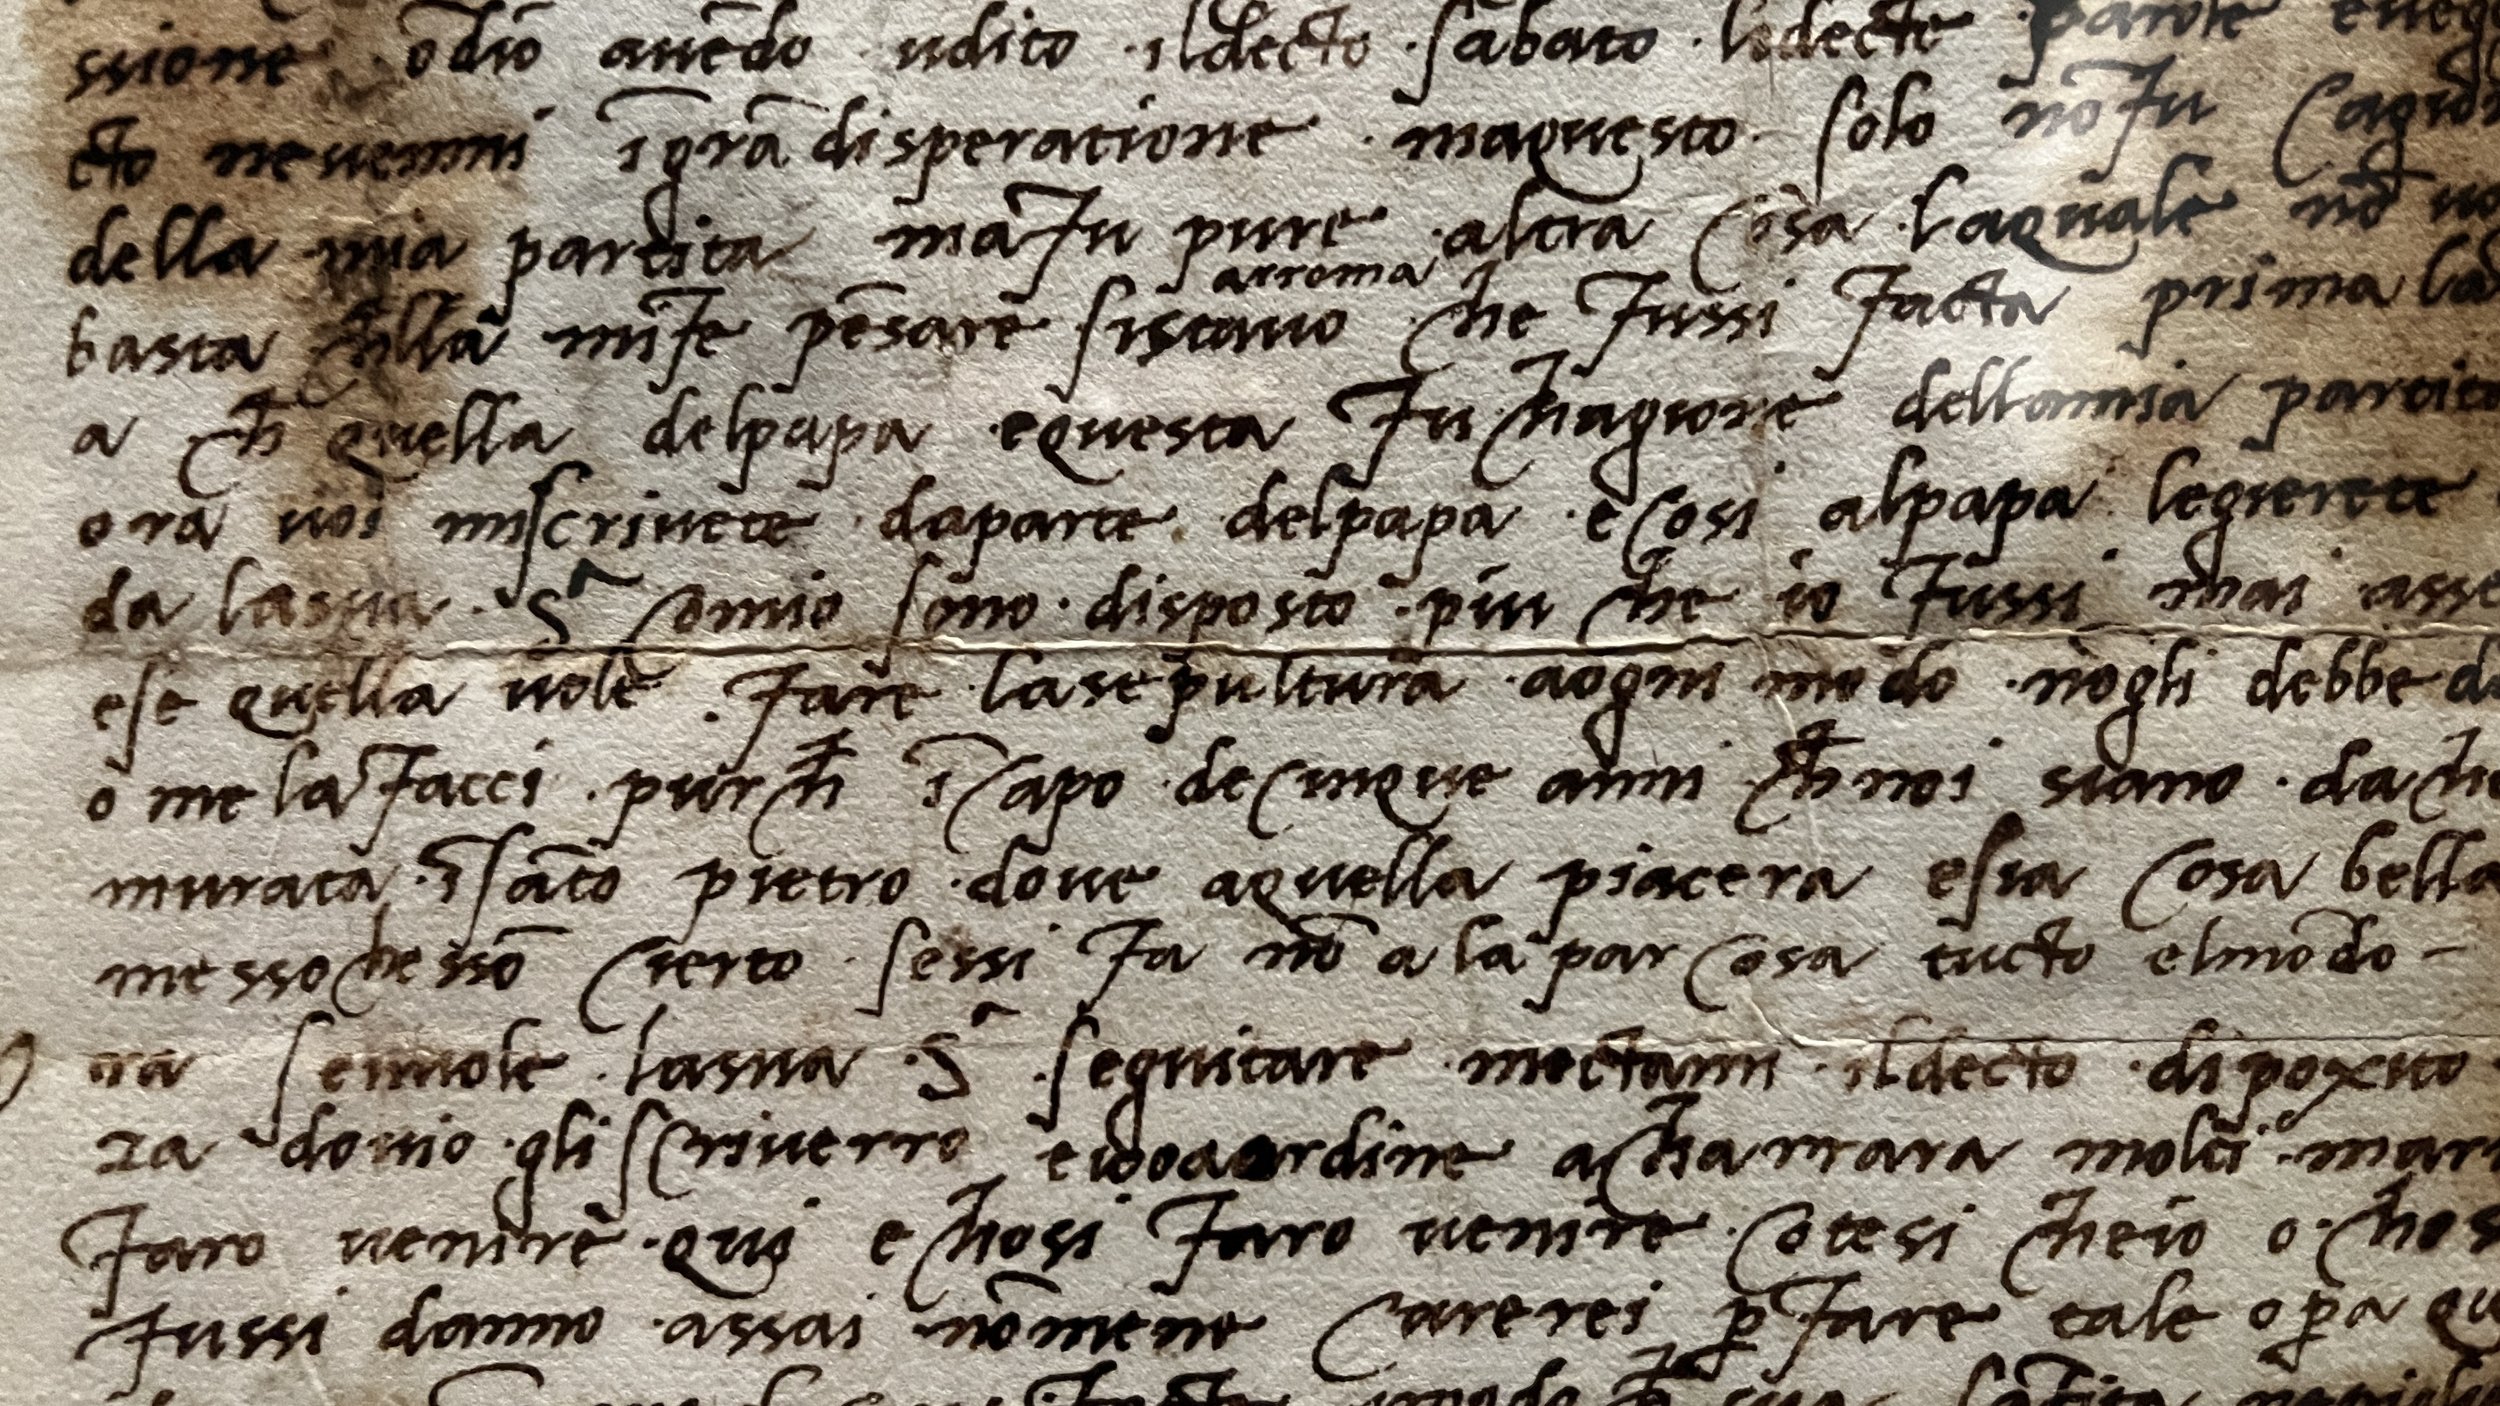 ssione ōdio avēdo udito il decto sabato le decte parole e veg
cto ne venni ī grā disperatione ma questo solo nō fu cagion
della mia partita ma fu pure altra cosa la quale nō vo
basta ch'ella mi fe pēsare s'i' stavo a rroma che fussi facta prima la
a ch̄ quella del papa e questa fu chagione della mia partita
ora voi mi scrivete da parte del papa e cosi al papa legierete
da la sua Sa com io sono disposto piu che io fussi mai a sse
e se quella vole fare la sepultura a ogni modo nō gli debbe d
o me la facci purch̄ ī capo de cinque anni ch̄ noi siano d'ache
murata ī sāto pietro dove a quella piacera e sia cosa bella
messo che ssō certo se ssi fa nō a la par cosa tucto el mōdo
ra se vuole la sua Sa seguitare mectami il decto diposito
za dov io gli scriverro e io o a ordine a charrara molti mar
faro venire qui e chosi faro venire cotesi che io o chos
fussi danno assai nō me ne curerei p̱ fare tale op̱a qu